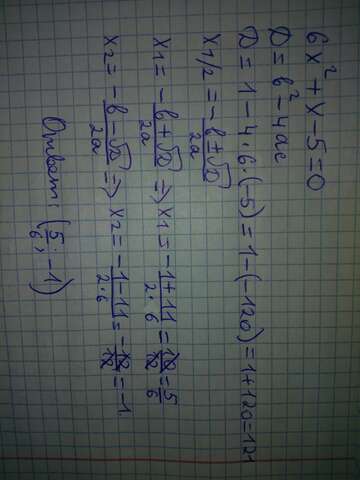 6x² + x - 5 = 0
D = b² - 4ac
D = 1 - 4 · 6 · (-5) = 1 - (-120) = 1 + 120 = 121
x1/2 = -b ± √D / 2a
x1 = -b + √D / 2a => x1 = -1 + 11 / 2 · 6 = 10/12 = 5/6
x2 = -b - √D / 2a => x2 = -1 - 11 / 2 · 6 = -12/12 = -1.
Ответ: (5/6; -1)